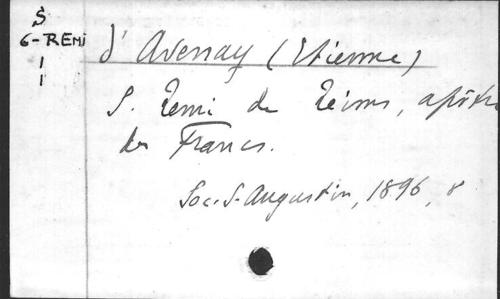 S
6-REMI
1
1
d'Avenay (Etienne)
S. Remi de Reims, apôtre
des Francs.
Soc. S. Augustin, 1896, 8